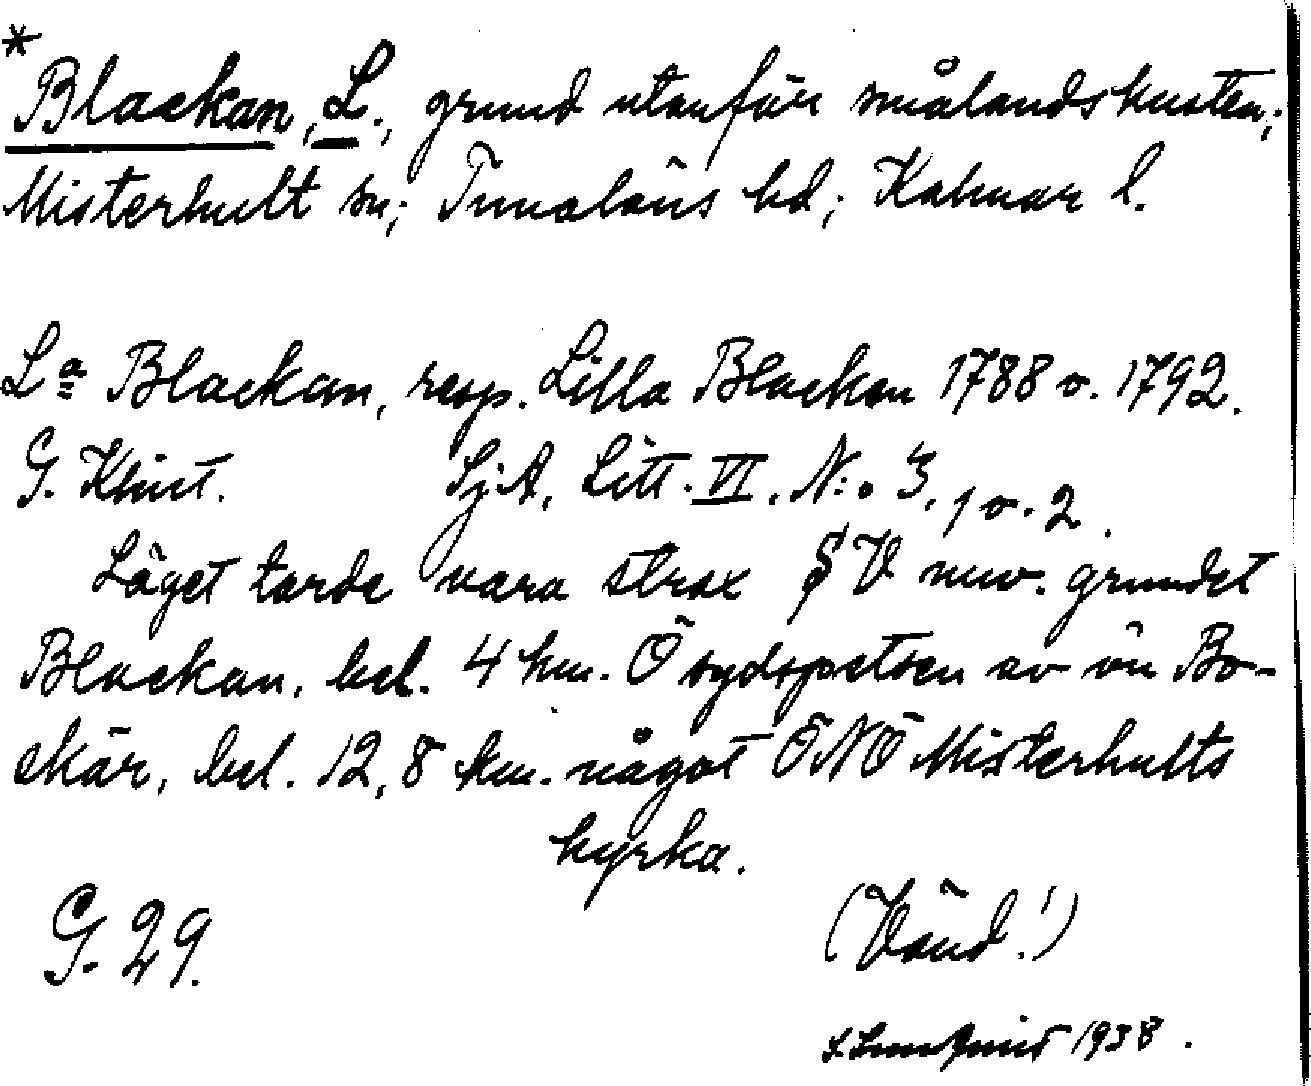 *
Blackan, L., grund utanför smålandskusten;
Misterhult sn; Tunaläns hd; Kalmar l.
La Blackan, resp. Lilla Blackan 1788 o. 1792.
G. Klint. SjA, Litt. VI. N:o 3, 1 o. 2.
Läget torde vara strax V nuv. grundet
Blackan, bel. 4 km. Ö sydspetsen av ön Bo-
skär, bel. 12,8 km. något ÖNÖ Misterhults
kyrka.
G. 29.
(Vänd!)
1938.